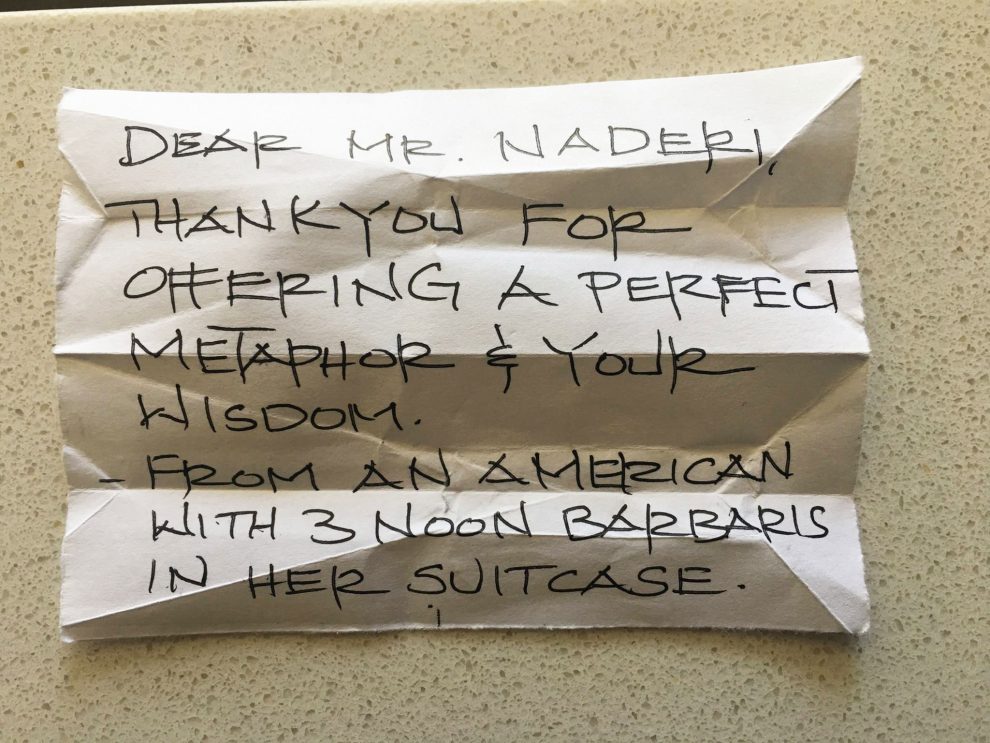 DEAR MR. NADERI,
THANK YOU FOR
OFFERING A PERFECT
METAPHOR & YOUR
WISDOM.
- FROM AN AMERICAN
WITH 3 NOON BARBARIS
IN HER SUITCASE.